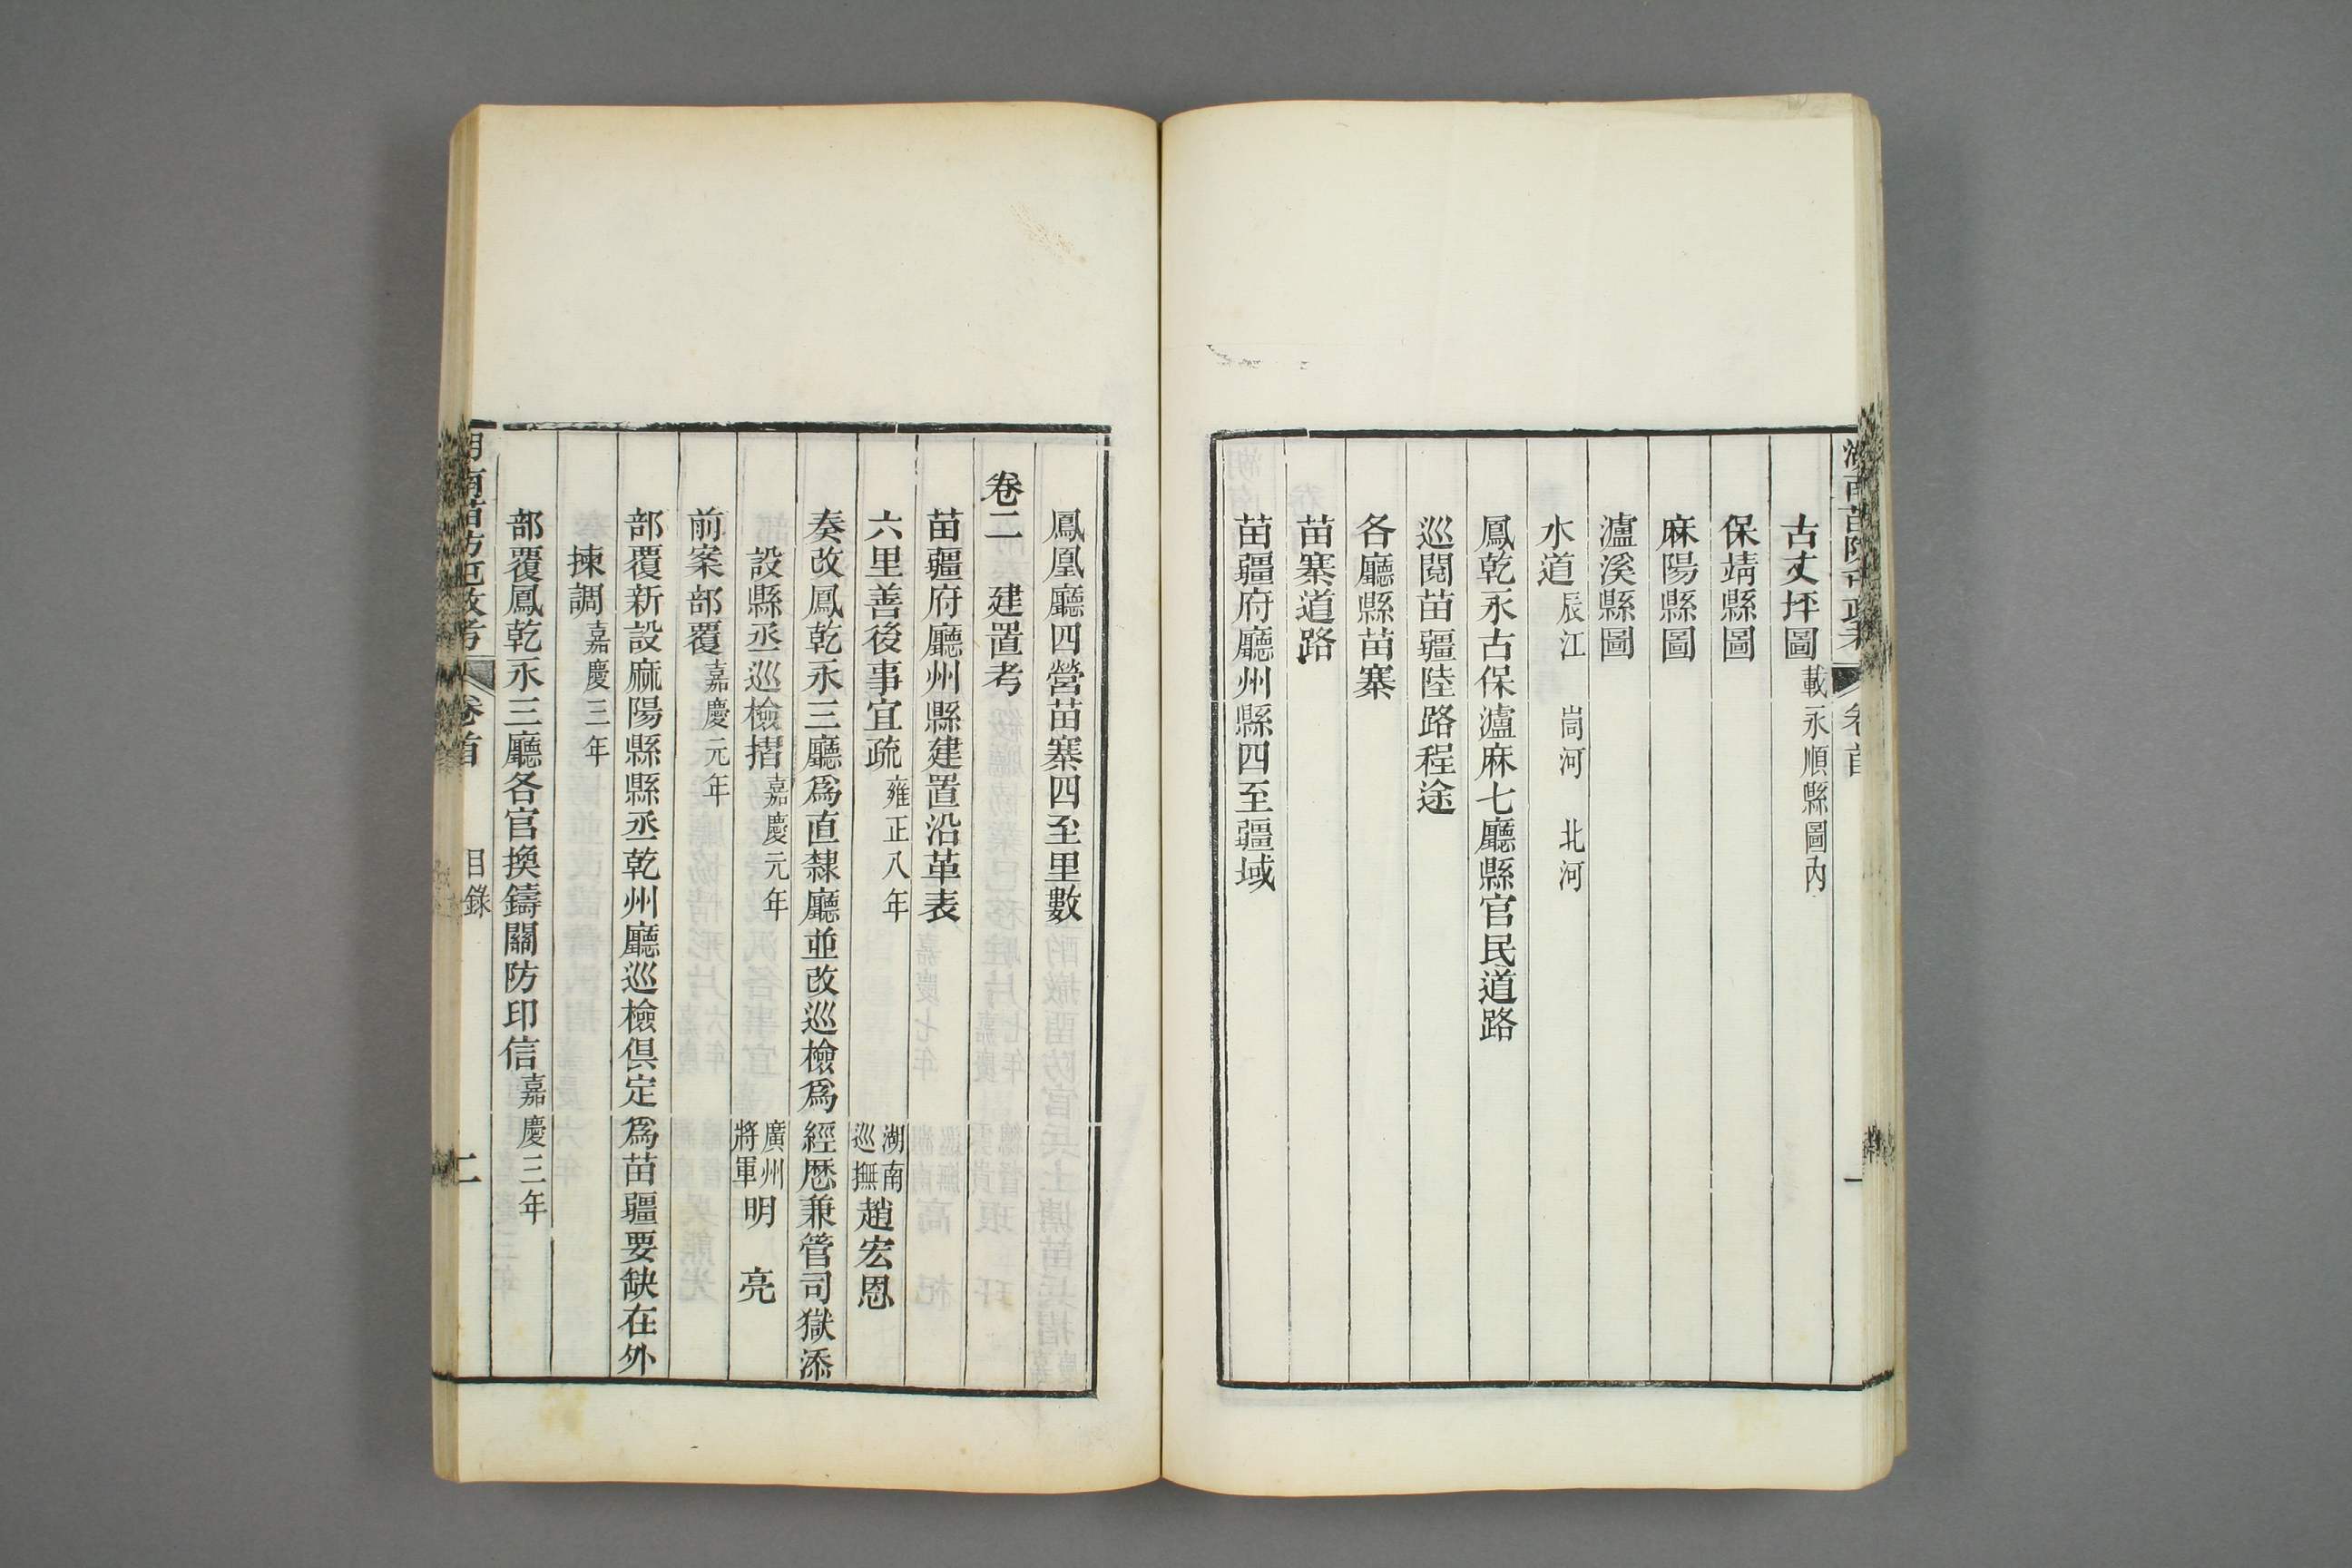 古丈坪圖載永順縣圖內
保靖縣圖
麻陽縣圖
瀘溪縣圖
水道辰江 峝河 北河
鳳乾永古保瀘麻七廳縣官民道路
巡閱苗疆陸路程途
各廳縣苗寨
苗寨道路
苗疆府廳州縣四至疆域
鳳凰廳四營苗寨四至里數
卷二 建置考
苗疆府廳州縣建置沿革表
六里善後事宜疏雍正八年 湖南巡撫趙宏恩
奏改鳳乾永三廳爲直隸廳並改巡檢爲經歷兼管司獄添
設縣丞巡檢摺嘉慶元年 廣州將軍明 亮
前案部覆嘉慶元年
部覆新設麻陽縣縣丞乾州廳巡檢俱定爲苗疆要缺在外
揀調嘉慶三年
部覆鳳乾永三廳各官換鑄關防印信嘉慶三年
湖南苗防屯政考 卷首 目錄 二